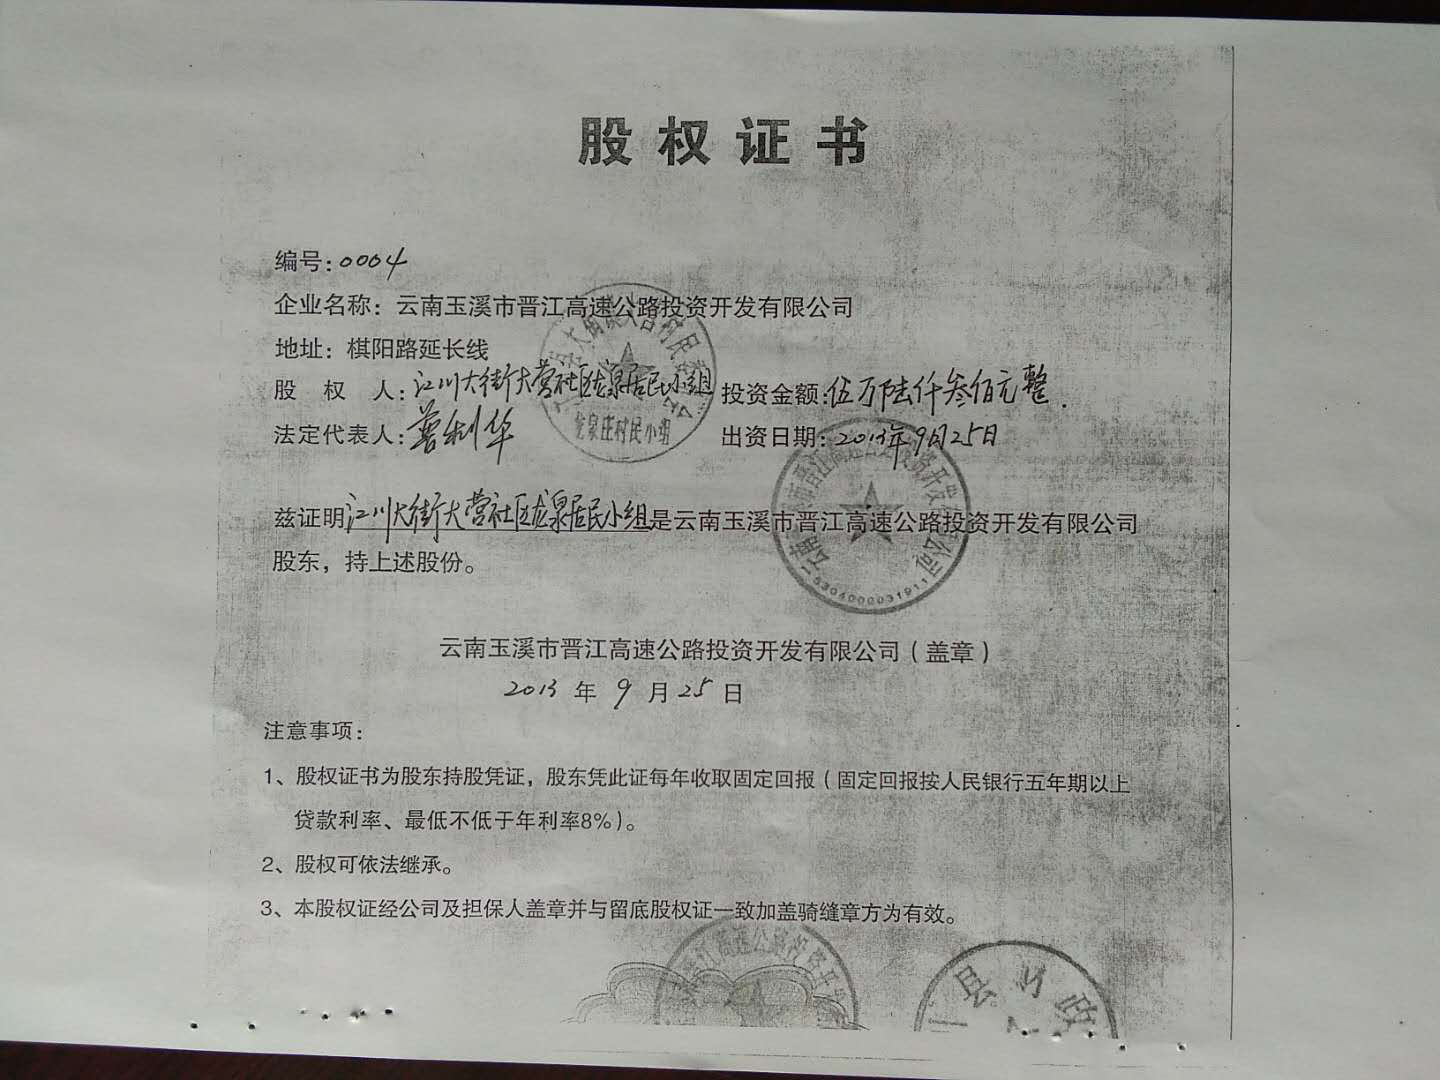 股权证书
编号：0004
企业名称：云南玉溪市晋江高速公路投资开发有限公司
地址：棋阳路延长线
股 权 人：江川大街大营社区龙泉居民小组 投资金额：伍万陆仟叁佰元整.
法定代表人：利华 出资日期：2013年9月25日
龙泉庄村民小组
兹证明江川大街大营社区龙泉居民小组是云南玉溪市晋江高速公路投资开发有限公司
股东，持上述股份。
5304000031911
云南玉溪市晋江高速公路投资开发有限公司（盖章）
2013 年 9 月 25 日
注意事项：
1、股权证书为股东持股凭证，股东凭此证每年收取固定回报（固定回报按人民银行五年期以上
贷款利率、最低不低于年利率8%）。
2、股权可依法继承。
3、本股权证经公司及担保人盖章并与留底股权证一致加盖骑缝章方为有效。
晋江高速公路投资开
县 政